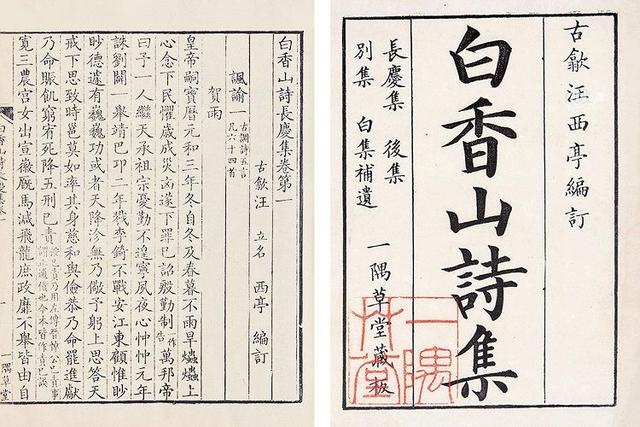 古歙汪西亭編訂
白香山詩集
長慶集 後集
別集 白集補遺
一隅草堂藏板
一隅
草堂
白香山詩長慶集卷第一
古歙汪 立名 西亭 編訂
諷諭一 古調詩五言凡六十四首
賀雨
皇帝嗣寶曆元和三年冬自冬及春暮不雨旱爞爞上
心念下民懼歲成災凶遂下罪己詔殷勤制一作告萬邦帝
曰予一人繼天承祖宗憂勤不遑寧夙夜心忡忡元年
誅劉闢一舉靖巴卭二年戮李錡不戰安江東顧惟眇
眇德遽有巍巍功或者天降沴無乃儆予躬上思答天
戒下思致時邕莫如率其身慈和與儉恭乃命罷進獻
乃命賑飢窮宥死降五刑已責
寬三農宮女出宣徽厩馬減飛龍庶政靡不舉皆由自
一隅草堂